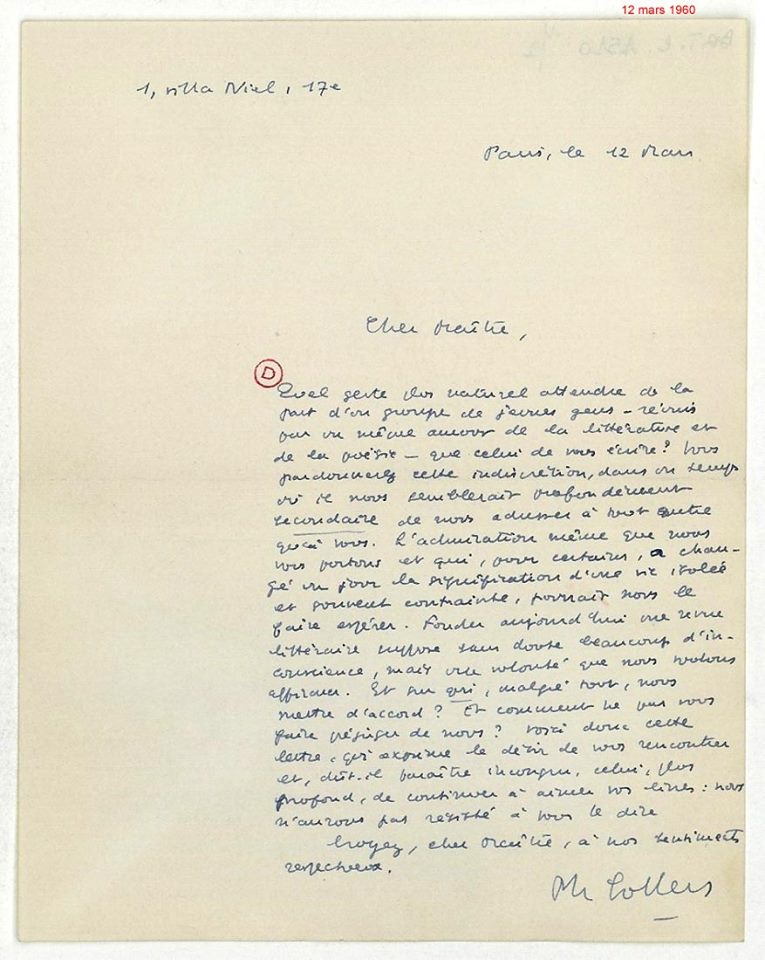 12 mars 1960
1, villa Niel, 17e
Paris, le 12 Mars
Cher Maître,
D
Quel geste plus naturel attendre de la
part d'un groupe de jeunes gens – réunis
par un même amour de la littérature et
de la poésie – que celui de vous écrire ? Vous
pardonnerez cette indiscrétion, dans un temps
où il nous semblerait profondément
secondaire de nous adresser à tout autre
qu'à vous. L'admiration même que nous
vous portons et qui, pour certains, a chan-
gé un jour la signification d'une vie isolée
et souvent contrainte, pourrait nous le
faire espérer. Fonder aujourd'hui une revue
littéraire suppose sans doute beaucoup d'in-
conscience, mais une volonté que nous voulons
affirmer. Et sur qui, malgré tout, nous
mettre d'accord ? Et comment ne pas vous
faire préjuger de nous ? Voici donc cette
lettre, qui exprime le désir de vous rencontrer
et, dût-il paraître incongru, celui, plus
profond, de continuer à aimer vos livres : nous
n'aurons pas résisté à vous le dire
Croyez, cher Maître, à nos sentiments
respectueux.
Ph Sollers